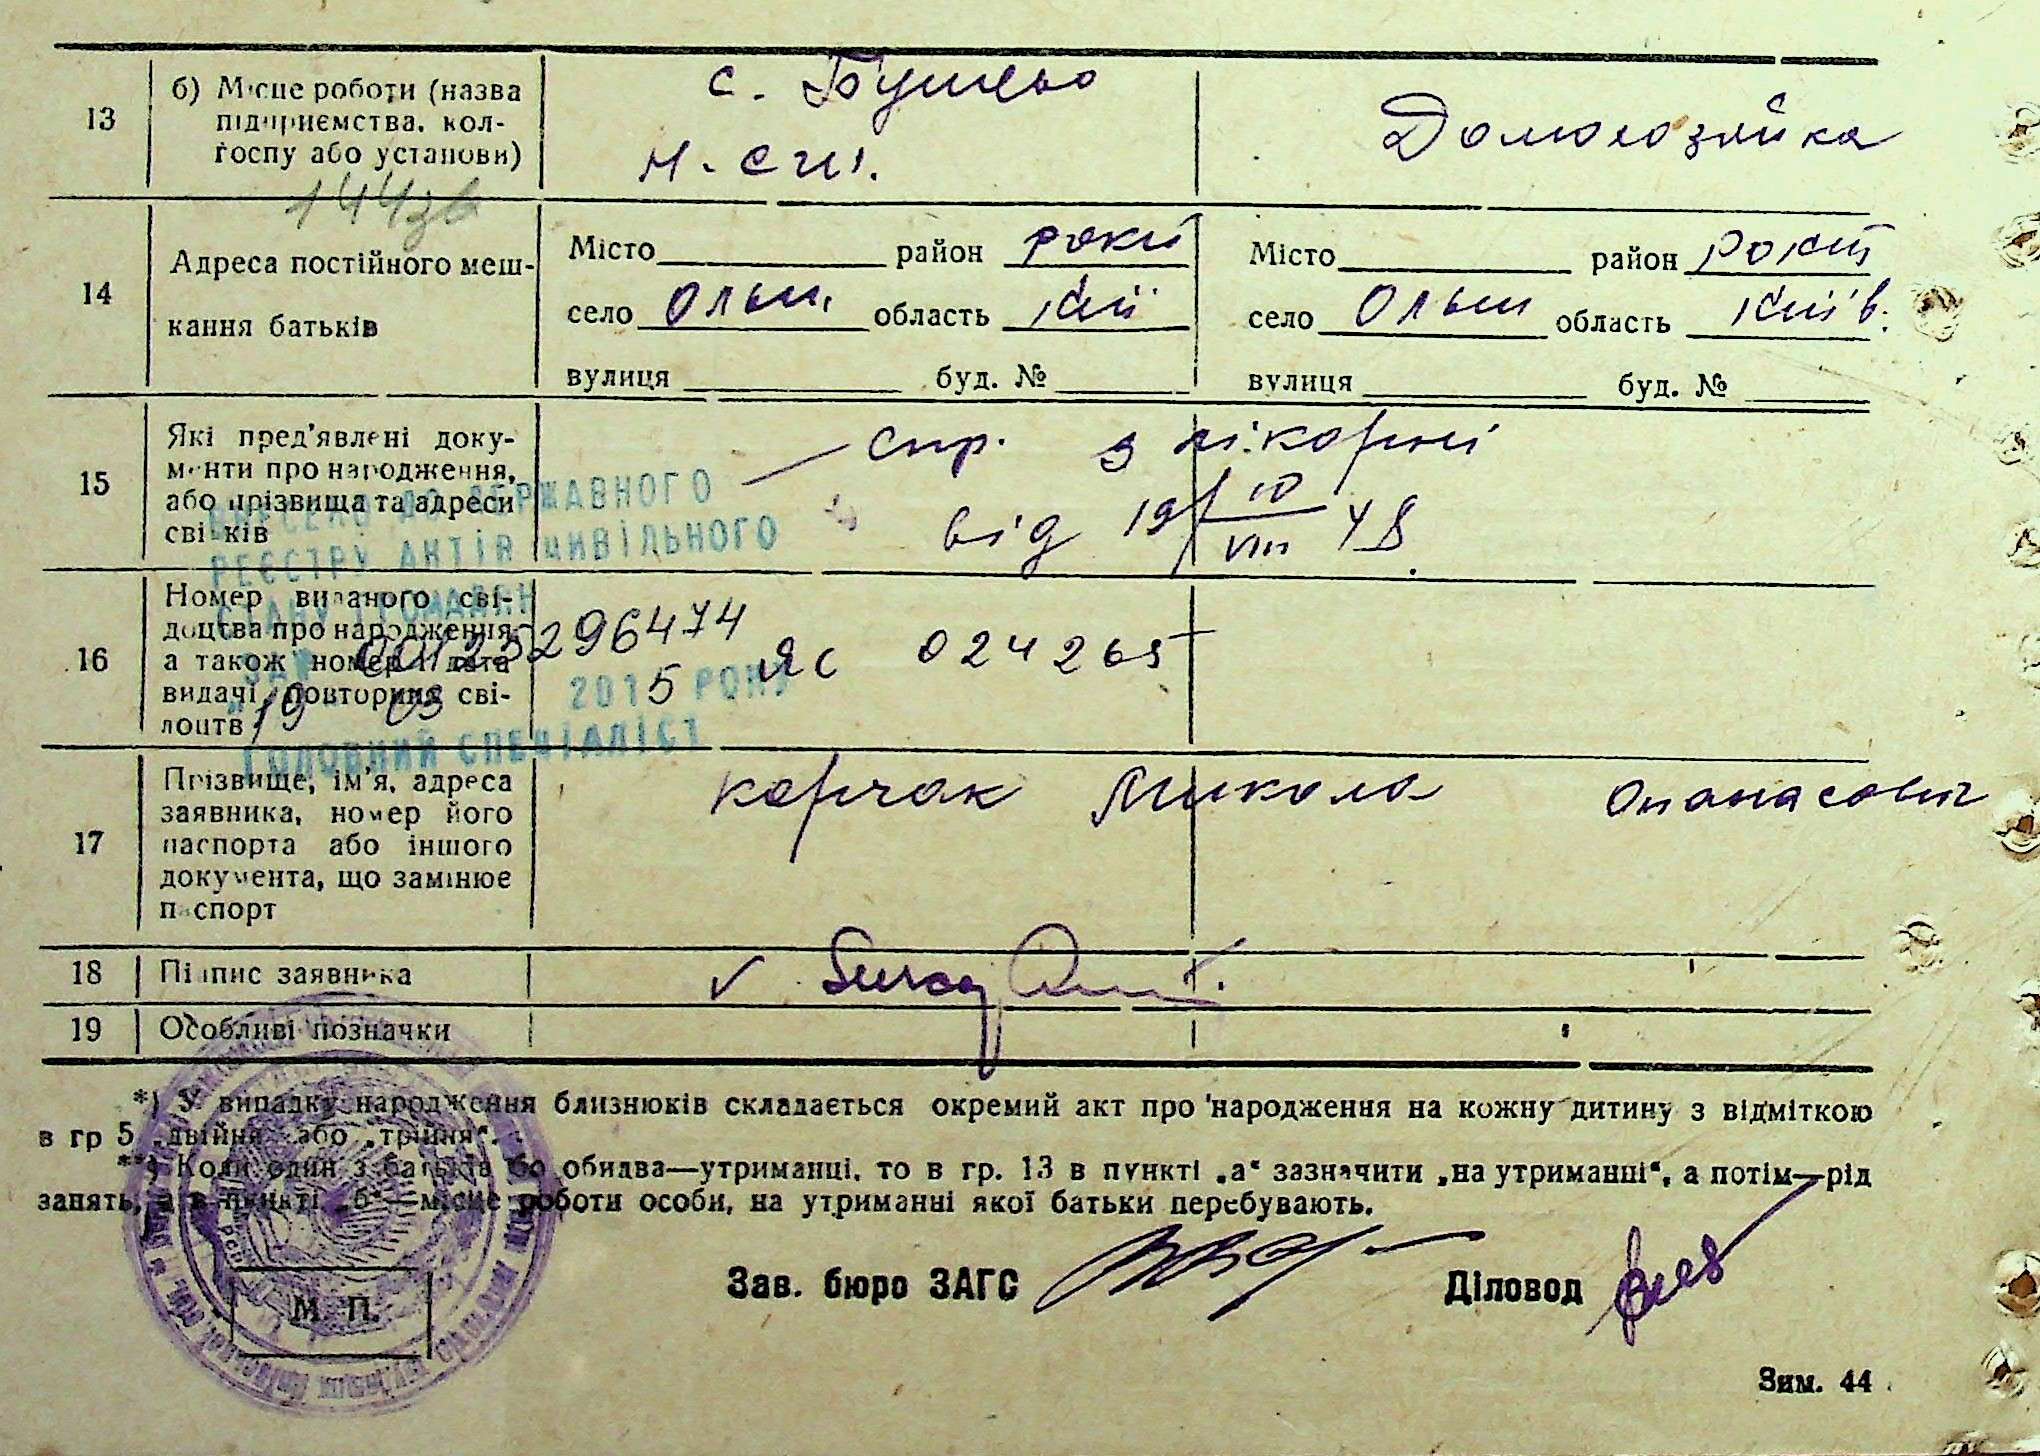 13
б) Місце роботи (назва
підприємства, кол-
госпу або установи)
с. Бушево
н. сш.
Домохозяйка
144зв
14
Адреса постійного меш-
кання батьків
Місто район роки
село Ольш. область Киї
вулиця буд. №
Місто район Рокит
село Ольш область Київ.
вулиця буд. №
15
Які пред'явлені доку-
менти про народження,
або прізвища та адреси
свідків
спр. з лікарні
від 19 10/VIII 48
ВНЕСЕНО ДО ДЕРЖАВНОГО
РЕЄСТРУ АКТІВ ЦИВІЛЬНОГО
СТАНУ ГРОМАДЯН
ЗА № 00125296474
"19" 03 2015 РОКУ
ГОЛОВНИЙ СПЕЦІАЛІСТ
16
Номер виданого сві-
доцтва про народження
а також номер і дата
видачі повторних сві-
доцтв
ЯС 024265
17
Прізвище, ім'я, адреса
заявника, номер його
паспорта або іншого
документа, що замінює
паспорт
Корчак Микола Опанасович
18
Підпис заявника
19
Особливі позначки
*) У випадку народження близнюків складається окремий акт про народження на кожну дитину з відміткою
в гр 5 „двійня" або „трійня".
**) Коли один з батьків або обидва—утриманці, то в гр. 13 в пункті „а" зазначити „на утриманні", а потім—рід
занять, а в пункті „б"—місце роботи особи, на утриманні якої батьки перебувають.
Зав. бюро ЗАГС
Діловод
М. П.
Зим. 44